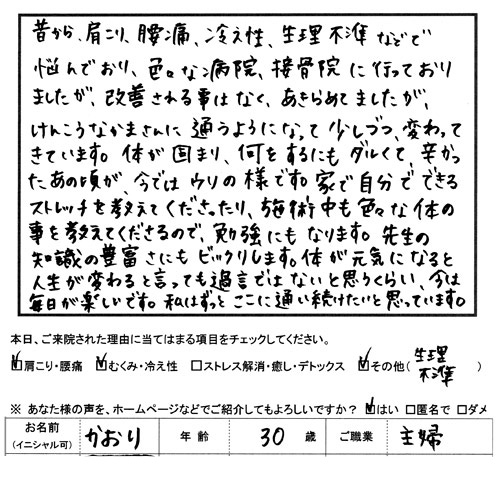 昔から、肩こり、腰痛、冷え性、生理不準などで
悩んでおり、色々な病院、接骨院に行っており
ましたが、改善される事はなく、あきらめてましたが、
けんこうなかまさんに通うようになって少しづつ、変わって
きています。体が固まり、何をするにもダルくて、辛かっ
たあの頃が、今ではウソの様です。家で自分でできる
ストレッチを教えてくださったり、施術中も色々な体の
事を教えてくださるので、勉強にもなります。先生の
知識の豊富さにもビックリします。体が元気になると
人生が変わると言っても過言ではないと思うくらい、今は
毎日が楽しいです。私はずっとここに通い続けたいと思っています。
本日、ご来院された理由に当てはまる項目をチェックしてください。
☑肩こり・腰痛 ☑むくみ・冷え性 □ストレス解消・癒し・デトックス ☑その他(生理不準)
※ あなた様の声を、ホームページなどでご紹介してもよろしいですか? ☑はい □匿名で □ダメ
お名前 (イニシャル可) かおり 年齢 30 歳 ご職業 主婦